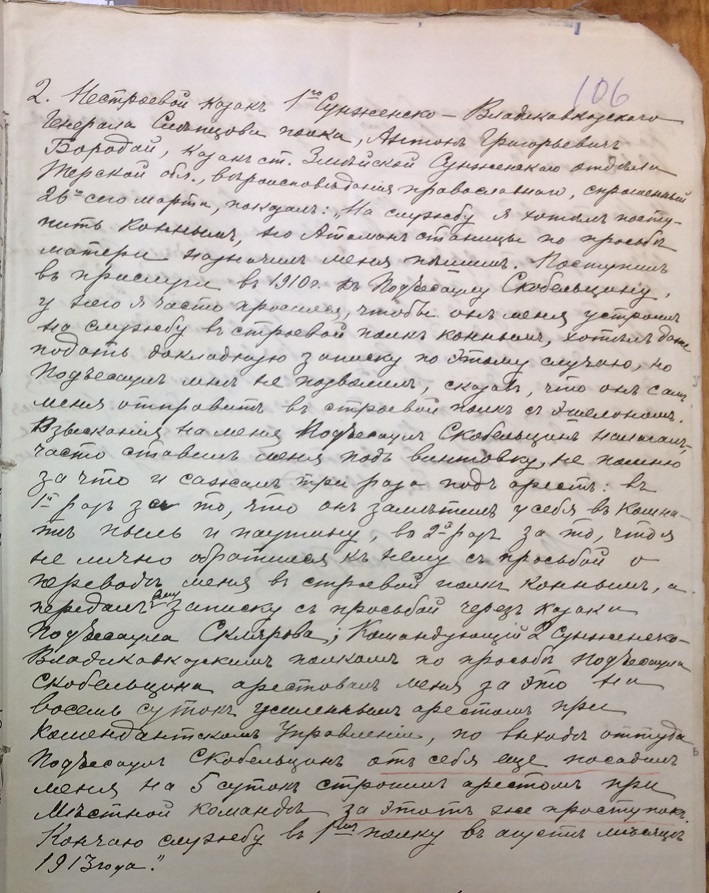 106
2. Нестроевой казакъ 1го Сунженско-Владикавказского
Генерала Слѣпцова полка, Антонъ Григорьевичъ
Бородай, казакъ ст. Змѣйской Сунженского отдѣла
Терской обл., вѣроисповѣданія православнаго, спрошенный
26го сего марта, показалъ: „На службу я хотѣлъ посту-
пить коннымъ, но Атаманъ станицы по просьбѣ
матери назначилъ меня пѣшимъ. Поступилъ
въ прислуги въ 1910 г. къ Подъесаулу Скобельцину,
у него я часто просился, чтобы онъ меня устроилъ
на службу въ строевой полкъ коннымъ, хотѣлъ даже
подать докладную записку по этому случаю, но
Подъесаулъ мнѣ не позволилъ, сказавъ, что онъ самъ
меня отправитъ въ строевой полкъ съ эшелономъ.
Взысканія на меня Подъесаулъ Скобельцинъ налагалъ,
часто ставилъ меня подъ винтовку, не помню
за что и сажалъ три раза подъ арестъ: въ
1й разъ за то, что онъ замѣтилъ у себя въ комна-
тѣ пыль и паутину, во 2й разъ за то, что я
не лично обратился къ нему съ просьбой о
переводѣ меня въ строевой полкъ коннымъ, а
передалъ ему записку съ просьбой черезъ казака
Подъесаула Склярова; Командующій 2 Сунженско-
Владикавказскимъ полкомъ по просьбѣ Подъесаула
Скобельцина арестовалъ меня за это на
восемь сутокъ усиленнымъ арестомъ при
Комендантскомъ Управленіи, по выходѣ оттуда
Подъесаулъ Скобельцинъ отъ себя еще посадилъ
меня на 5 сутокъ строгимъ арестомъ при
Мѣстной командѣ за этотъ же проступокъ.
Кончаю службу въ 1мъ полку въ августѣ мѣсяцѣ
1913 года."